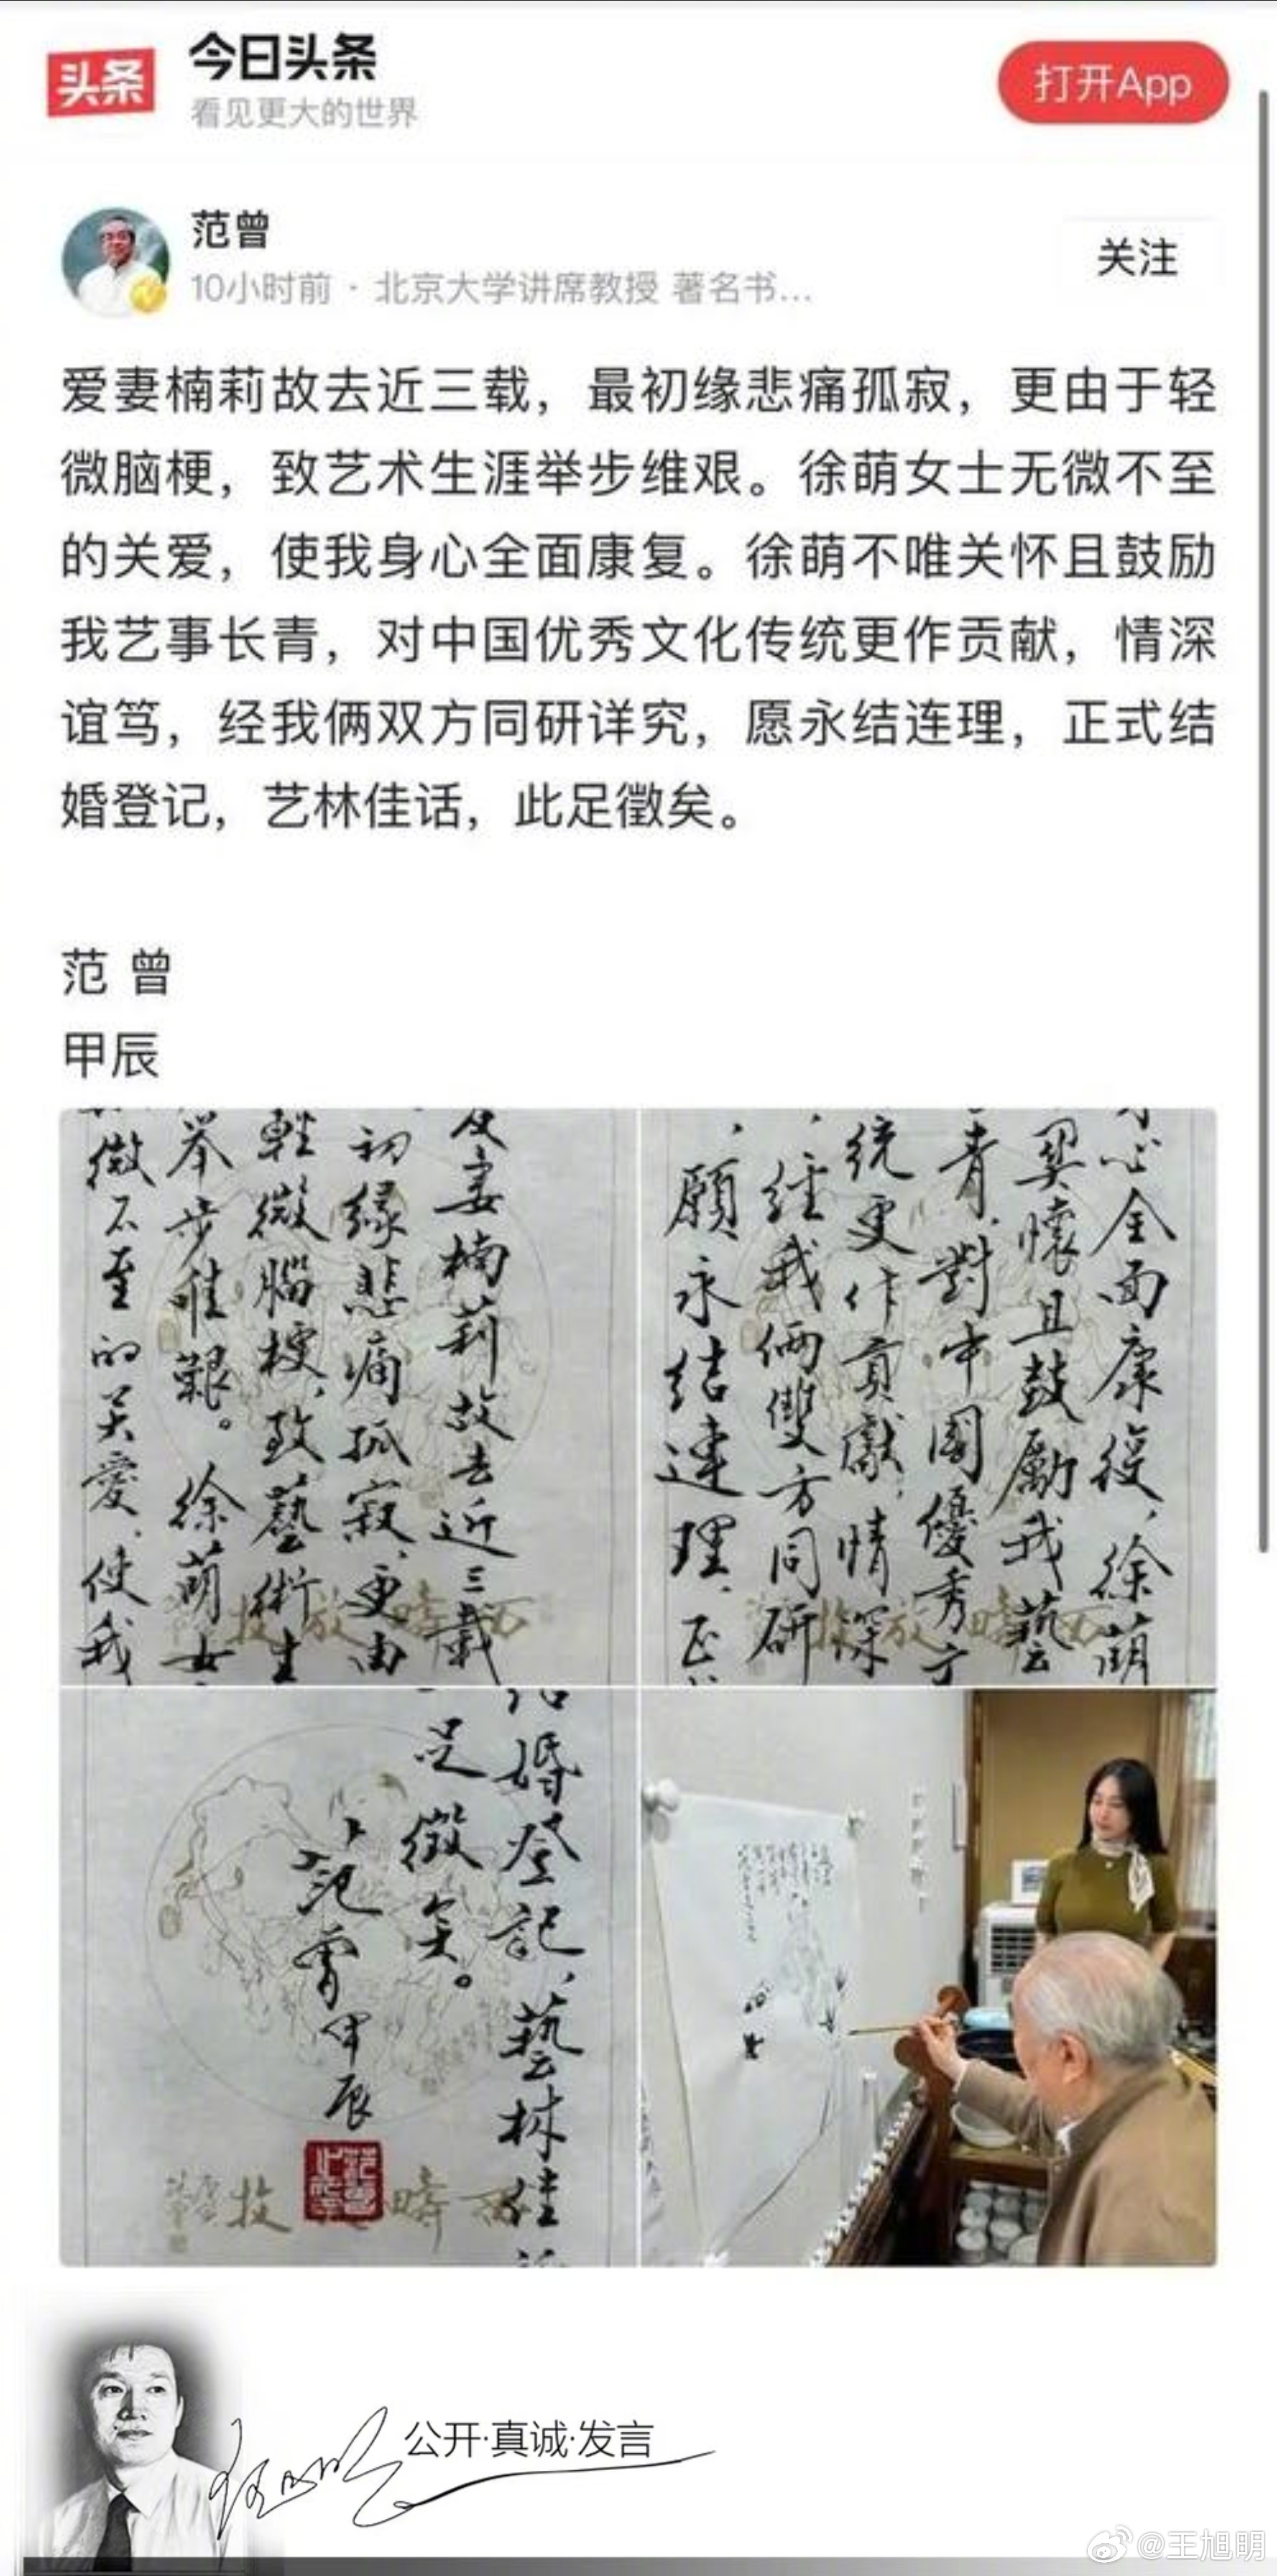 头条
今日头条
看见更大的世界
打开App
范曾
10小时前 · 北京大学讲席教授 著名书...
关注
爱妻楠莉故去近三载，最初缘悲痛孤寂，更由于轻
微脑梗，致艺术生涯举步维艰。徐萌女士无微不至
的关爱，使我身心全面康复。徐萌不唯关怀且鼓励
我艺事长青，对中国优秀文化传统更作贡献，情深
谊笃，经我俩双方同研详究，愿永结连理，正式结
婚登记，艺林佳话，此足徵矣。
范 曾
甲辰
妻楠莉故去近三载
初缘悲痛孤寂，更由
輕微腦梗，致藝術生
举步维艱。徐萌女
微不至的关愛，使我
心全面康復，徐萌
懷且鼓勵我藝
青，對中國優秀
統更作貢獻，情深
，經我倆雙方同研
，願永结連理，正
婚登記，藝林佳
足徵矣。
范曾甲辰
公开·真诚·发言
@王旭明